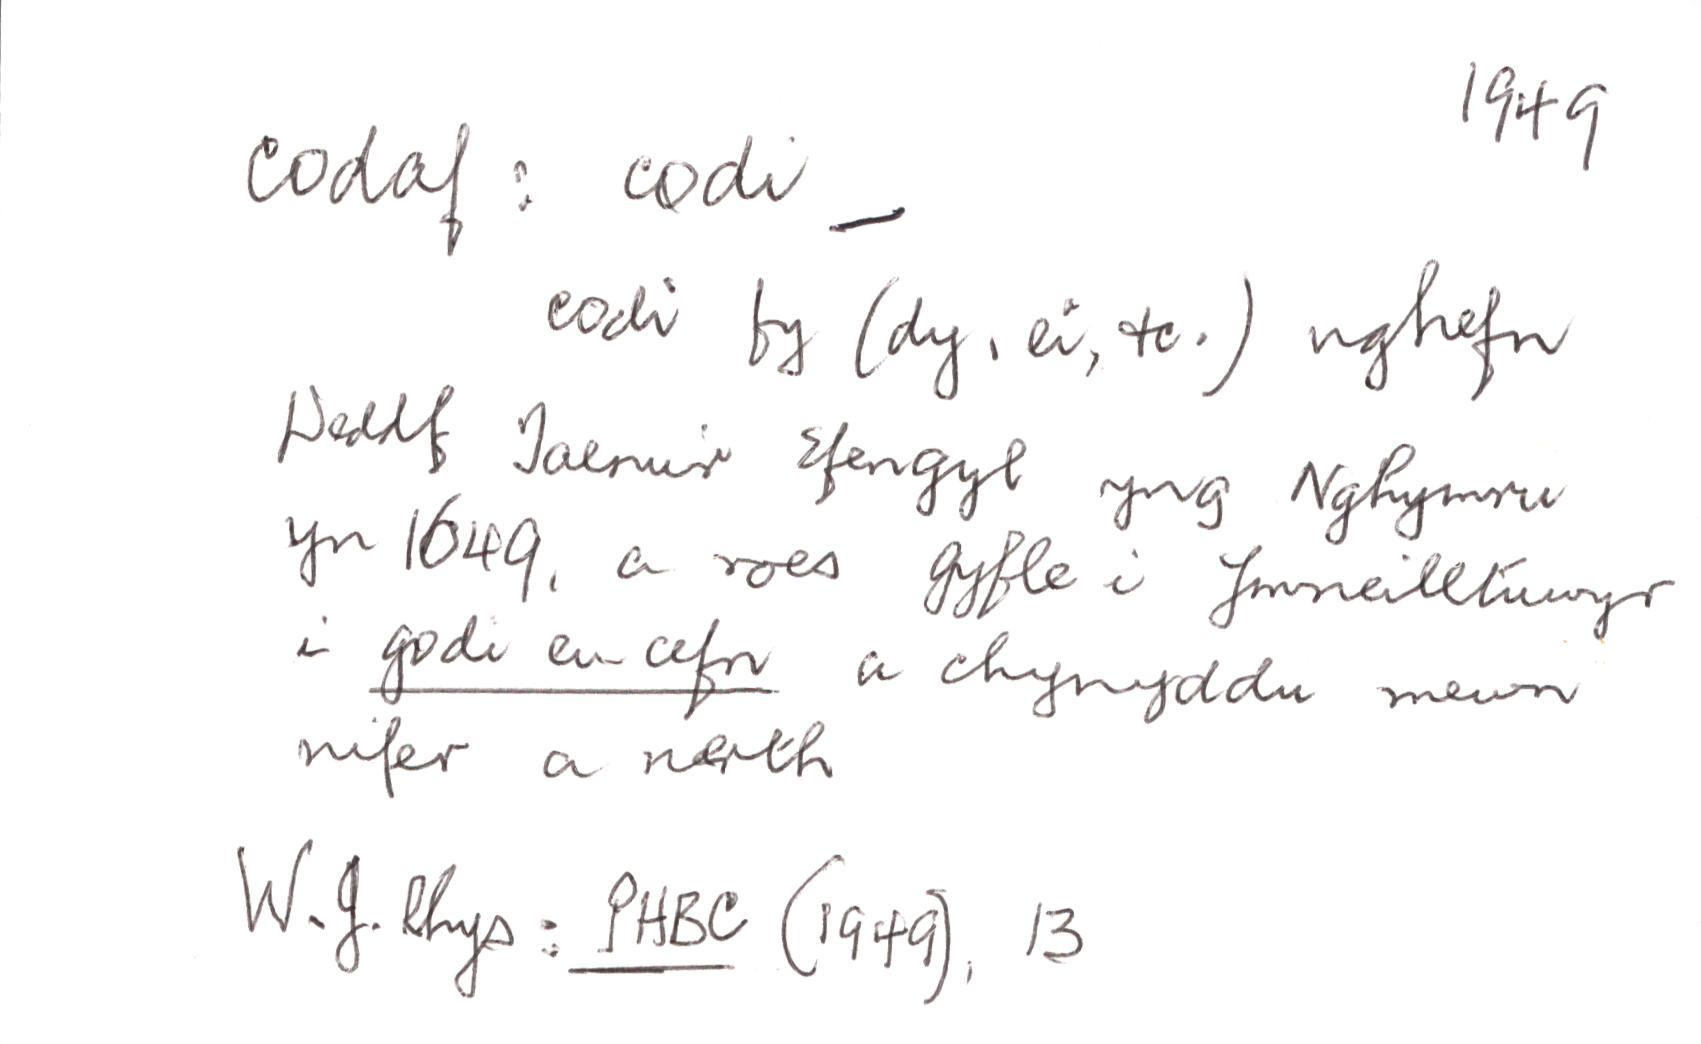 1949
codaf : codi –
codi fy (dy, ei, etc.) nghefn
Deddf Taenu'r Efengyl yng Nghymru
yn 1649, a roes gyfle i Ymneilltuwyr
i godi eu cefn a chynyddu mewn
nifer a nerth
W. J. Rhys : PHBC (1949), 13